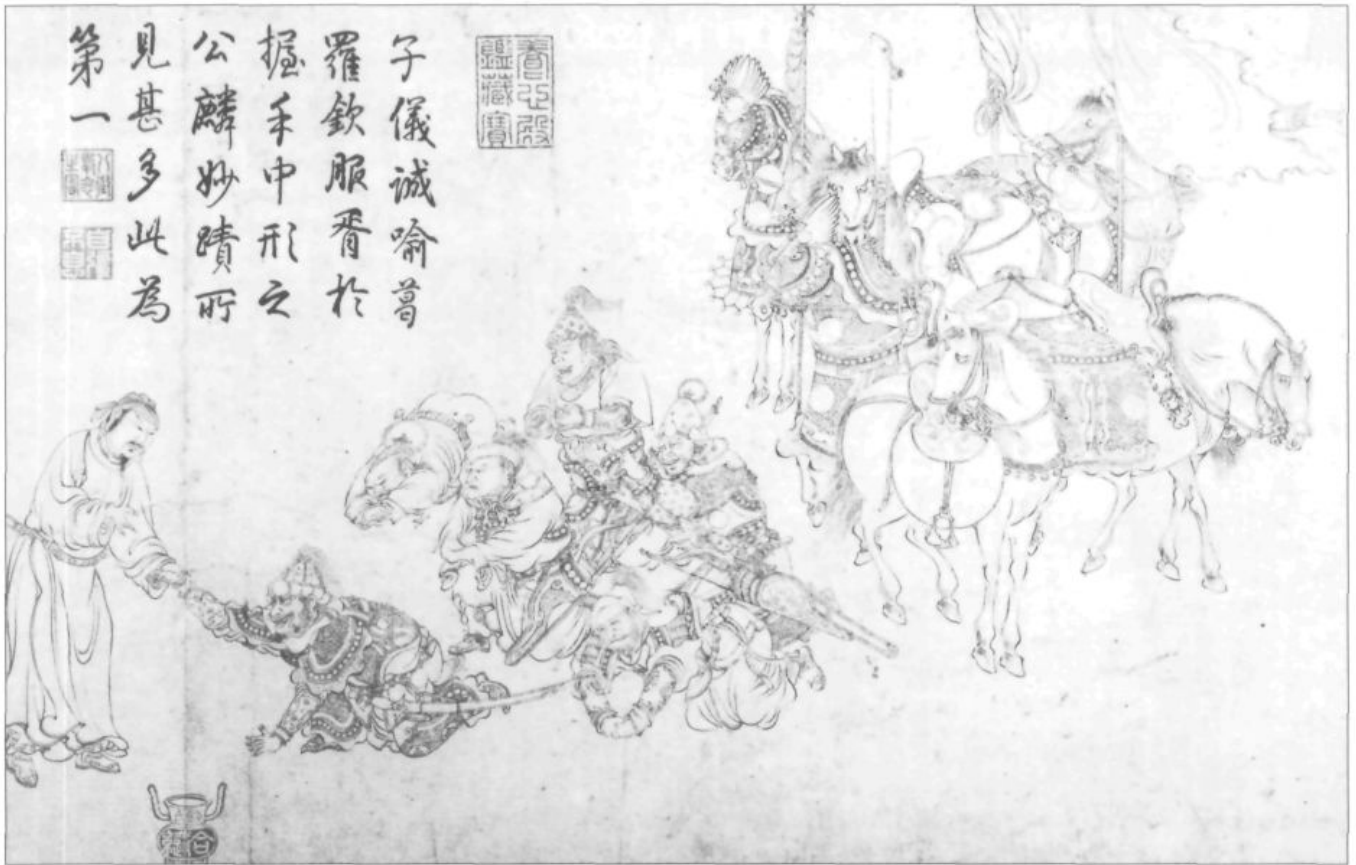 子儀誠喻葛
羅欽服胥於
握手中形之
公麟妙蹟所
見甚多此為
第一
養心殿
鑑藏寶